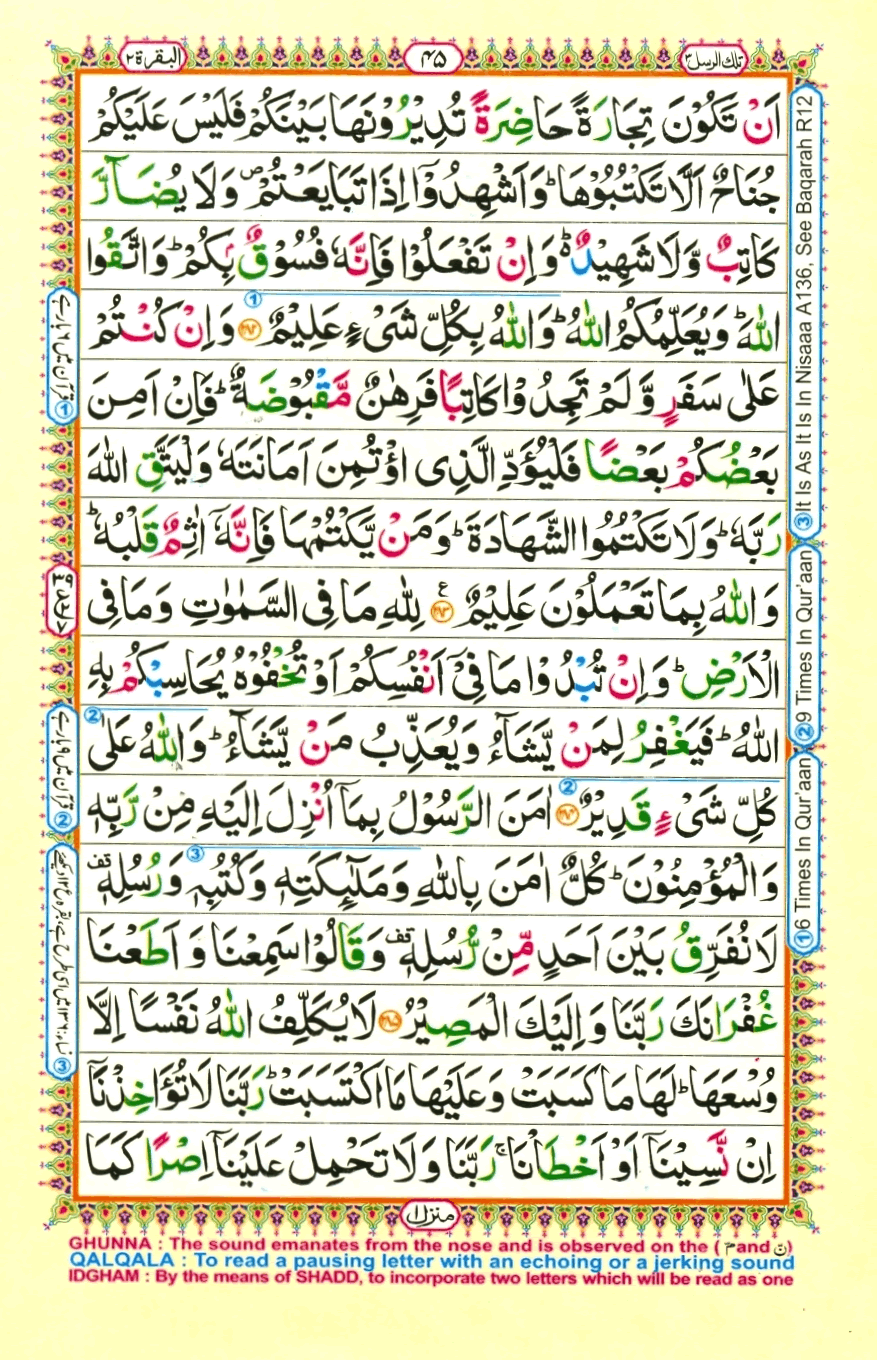 تلك الرسل ۳
۴۵
البقرة ۲
اَنْ تَكُوْنَ تِجَارَةً حَاضِرَةً تُدِيْرُوْنَهَا بَيْنَكُمْ فَلَيْسَ عَلَيْكُمْ
جُنَاحٌ اَلَّا تَكْتُبُوْهَا ؕ وَاَشْهِدُوْۤا اِذَا تَبَايَعْتُمْ ۪ وَلَا يُضَآرَّ
كَاتِبٌ وَّلَا شَهِيْدٌ ؕ۬ وَاِنْ تَفْعَلُوْا فَاِنَّهٗ فُسُوْقٌۢ بِكُمْ ؕ وَاتَّقُوا
اللّٰهَ ؕ وَيُعَلِّمُكُمُ اللّٰهُ ؕ وَاللّٰهُ بِكُلِّ شَیْءٍ عَلِيْمٌ ﴿۲۸۲﴾ وَاِنْ كُنْتُمْ
عَلٰى سَفَرٍ وَّلَمْ تَجِدُوْا كَاتِبًا فَرِهٰنٌ مَّقْبُوْضَةٌ ؕ فَاِنْ اَمِنَ
بَعْضُكُمْ بَعْضًا فَلْيُؤَدِّ الَّذِى اؤْتُمِنَ اَمَانَتَهٗ وَلْيَتَّقِ اللّٰهَ
رَبَّهٗ ؕ وَلَا تَكْتُمُوا الشَّهَادَةَ ؕ وَمَنْ يَّكْتُمْهَا فَاِنَّهٗۤ اٰثِمٌ قَلْبُهٗ ؕ
وَاللّٰهُ بِمَا تَعْمَلُوْنَ عَلِيْمٌ ﴿۲۸۳﴾ ع لِلّٰهِ مَا فِى السَّمٰوٰتِ وَمَا فِى
الْاَرْضِ ؕ وَاِنْ تُبْدُوْا مَا فِىْۤ اَنْفُسِكُمْ اَوْ تُخْفُوْهُ يُحَاسِبْكُمْ بِهِ
اللّٰهُ ؕ فَيَغْفِرُ لِمَنْ يَّشَآءُ وَيُعَذِّبُ مَنْ يَّشَآءُ ؕ وَاللّٰهُ عَلٰى
كُلِّ شَیْءٍ قَدِيْرٌ ﴿۲۸۴﴾ اٰمَنَ الرَّسُوْلُ بِمَاۤ اُنْزِلَ اِلَيْهِ مِنْ رَّبِّهٖ
وَالْمُؤْمِنُوْنَ ؕ كُلٌّ اٰمَنَ بِاللّٰهِ وَمَلٰٓئِكَتِهٖ وَكُتُبِهٖ وَرُسُلِهٖ قف
لَا نُفَرِّقُ بَيْنَ اَحَدٍ مِّنْ رُّسُلِهٖ قف وَقَالُوْا سَمِعْنَا وَاَطَعْنَا
غُفْرَانَكَ رَبَّنَا وَاِلَيْكَ الْمَصِيْرُ ﴿۲۸۵﴾ لَا يُكَلِّفُ اللّٰهُ نَفْسًا اِلَّا
وُسْعَهَا ؕ لَهَا مَا كَسَبَتْ وَعَلَيْهَا مَا اكْتَسَبَتْ ؕ رَبَّنَا لَا تُؤَاخِذْنَاۤ
اِنْ نَّسِيْنَاۤ اَوْ اَخْطَاْنَا ۚ رَبَّنَا وَلَا تَحْمِلْ عَلَيْنَاۤ اِصْرًا كَمَا
منزل ۱
③ It Is As It Is In Nisaaa A136, See Baqarah R12
② 9 Times In Qur'aan
① 6 Times In Qur'aan
① قرآن میں ۶ بار ہے
② قرآن میں ۹ بار ہے
GHUNNA : The sound emanates from the nose and is observed on the ( مّ and نّ )
QALQALA : To read a pausing letter with an echoing or a jerking sound
IDGHAM : By the means of SHADD, to incorporate two letters which will be read as one